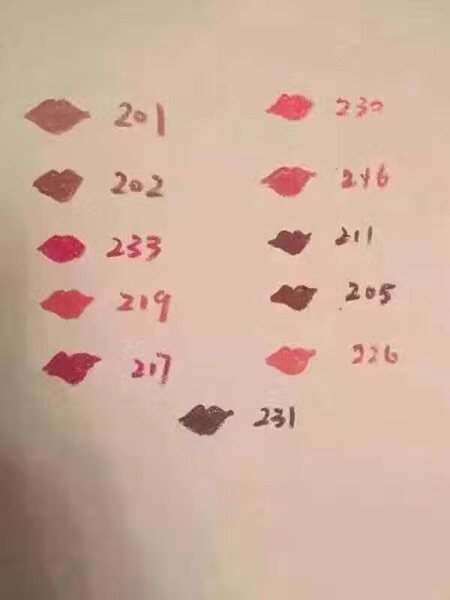 201 230
202 216
233 211
219 205
217 226
231